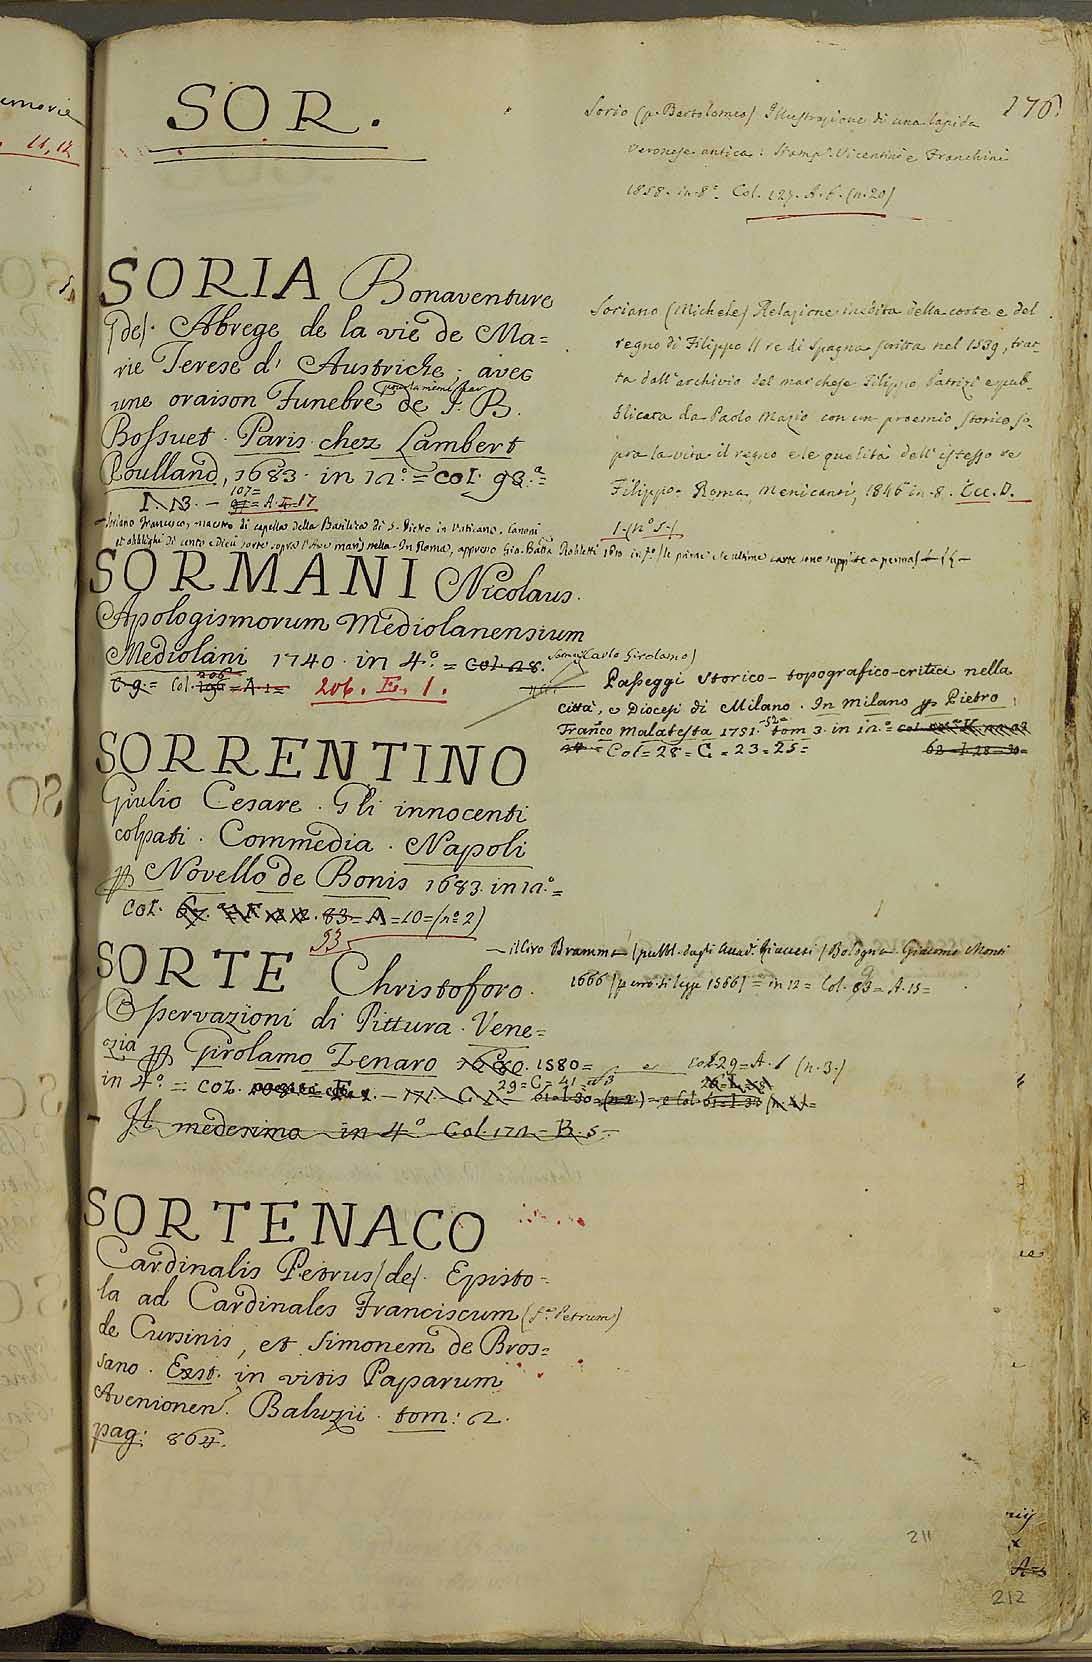 SOR.
176.
Sorio (p. Bartolomeo) Illustrazione di una lapida
veronese antica: Stamp. Vicentini e Franchini
1858. in 8º. Col. 127. A. 6. (n. 20)
SORIA Bonaventure
(de). Abrege de la vie de Ma=
rie Terese d' Austriche; avec
une oraison Funebre de J. B.
pour la meme par
Bossuet. Paris chez Lambert
Roulland, 1683. in 12º. = col. 98.
107=
= A. I=17
Soriano (Michele) Relazione inedita della corte e del
regno di Filippo II re di Spagna scritta nel 1559, trat-
ta dall'archivio del marchese Filippo Patrizi e pub-
blicata da Paolo Mazio con un proemio storico so-
pra la vita il regno e le qualità dell'istesso re
Filippo. Roma Menicanti, 1846 in 8. Ecc. D.
1. (nº 5.)
Soriano Francesco, maestro di capella della Basilica di S. Pietro in Vaticano. Canoni
et obblighi di cento e dieci sorte sopra l'Ave maris stella. In Roma, appresso Gio. Batta Robletti 1610 in fº (le prime e le ultime carte sono supplite a penna)
SORMANI Nicolaus.
Apologismorum Mediolanensium
Mediolani 1740. in 4º. = col. 28.
C. 9 = Col. 196 = A. 1 =
206
206. E. 1.
Carlo Girolamo)
Passeggi storico-topografico-critici nella
città, e Diocesi di Milano. In Milano per Pietro
Franco Malatesta 1751. -52= tom 3. in 12º =
Col = 28 = C = 23 = 25 =
62 = I. 28 = 30 =
SORRENTINO
Giulio Cesare. Gli innocenti
colpati. Commedia. Napoli
per Novello de Bonis 1683. in 12º =
Col. 83 = A = 10 = (nº 2)
93
SORTE Christoforo.
— il Ciro Dramma (pubbl. dagli Accad. / Bologna Giacomo Monti
1666 (per error si legge 1566) = in 12 = Col. 83 = A. 15 =
Osservazioni di Pittura. Vene=
zia per Girolamo Zenaro 1580 =
in 4º. = col.
29 = C = 41
e col 29 = A. 1 (n. 3.)
Il medesimo in 4º Col. 171 = B. 5 =
SORTENACO
Cardinalis Petrus (de). Episto=
la ad Cardinales Franciscum (Petrum)
de Cursinis, et Simonem de Bros=
sano. Exst. in vitis Paparum
Avenionen. Baluzii. tom: 2.
pag: 864.
211
212